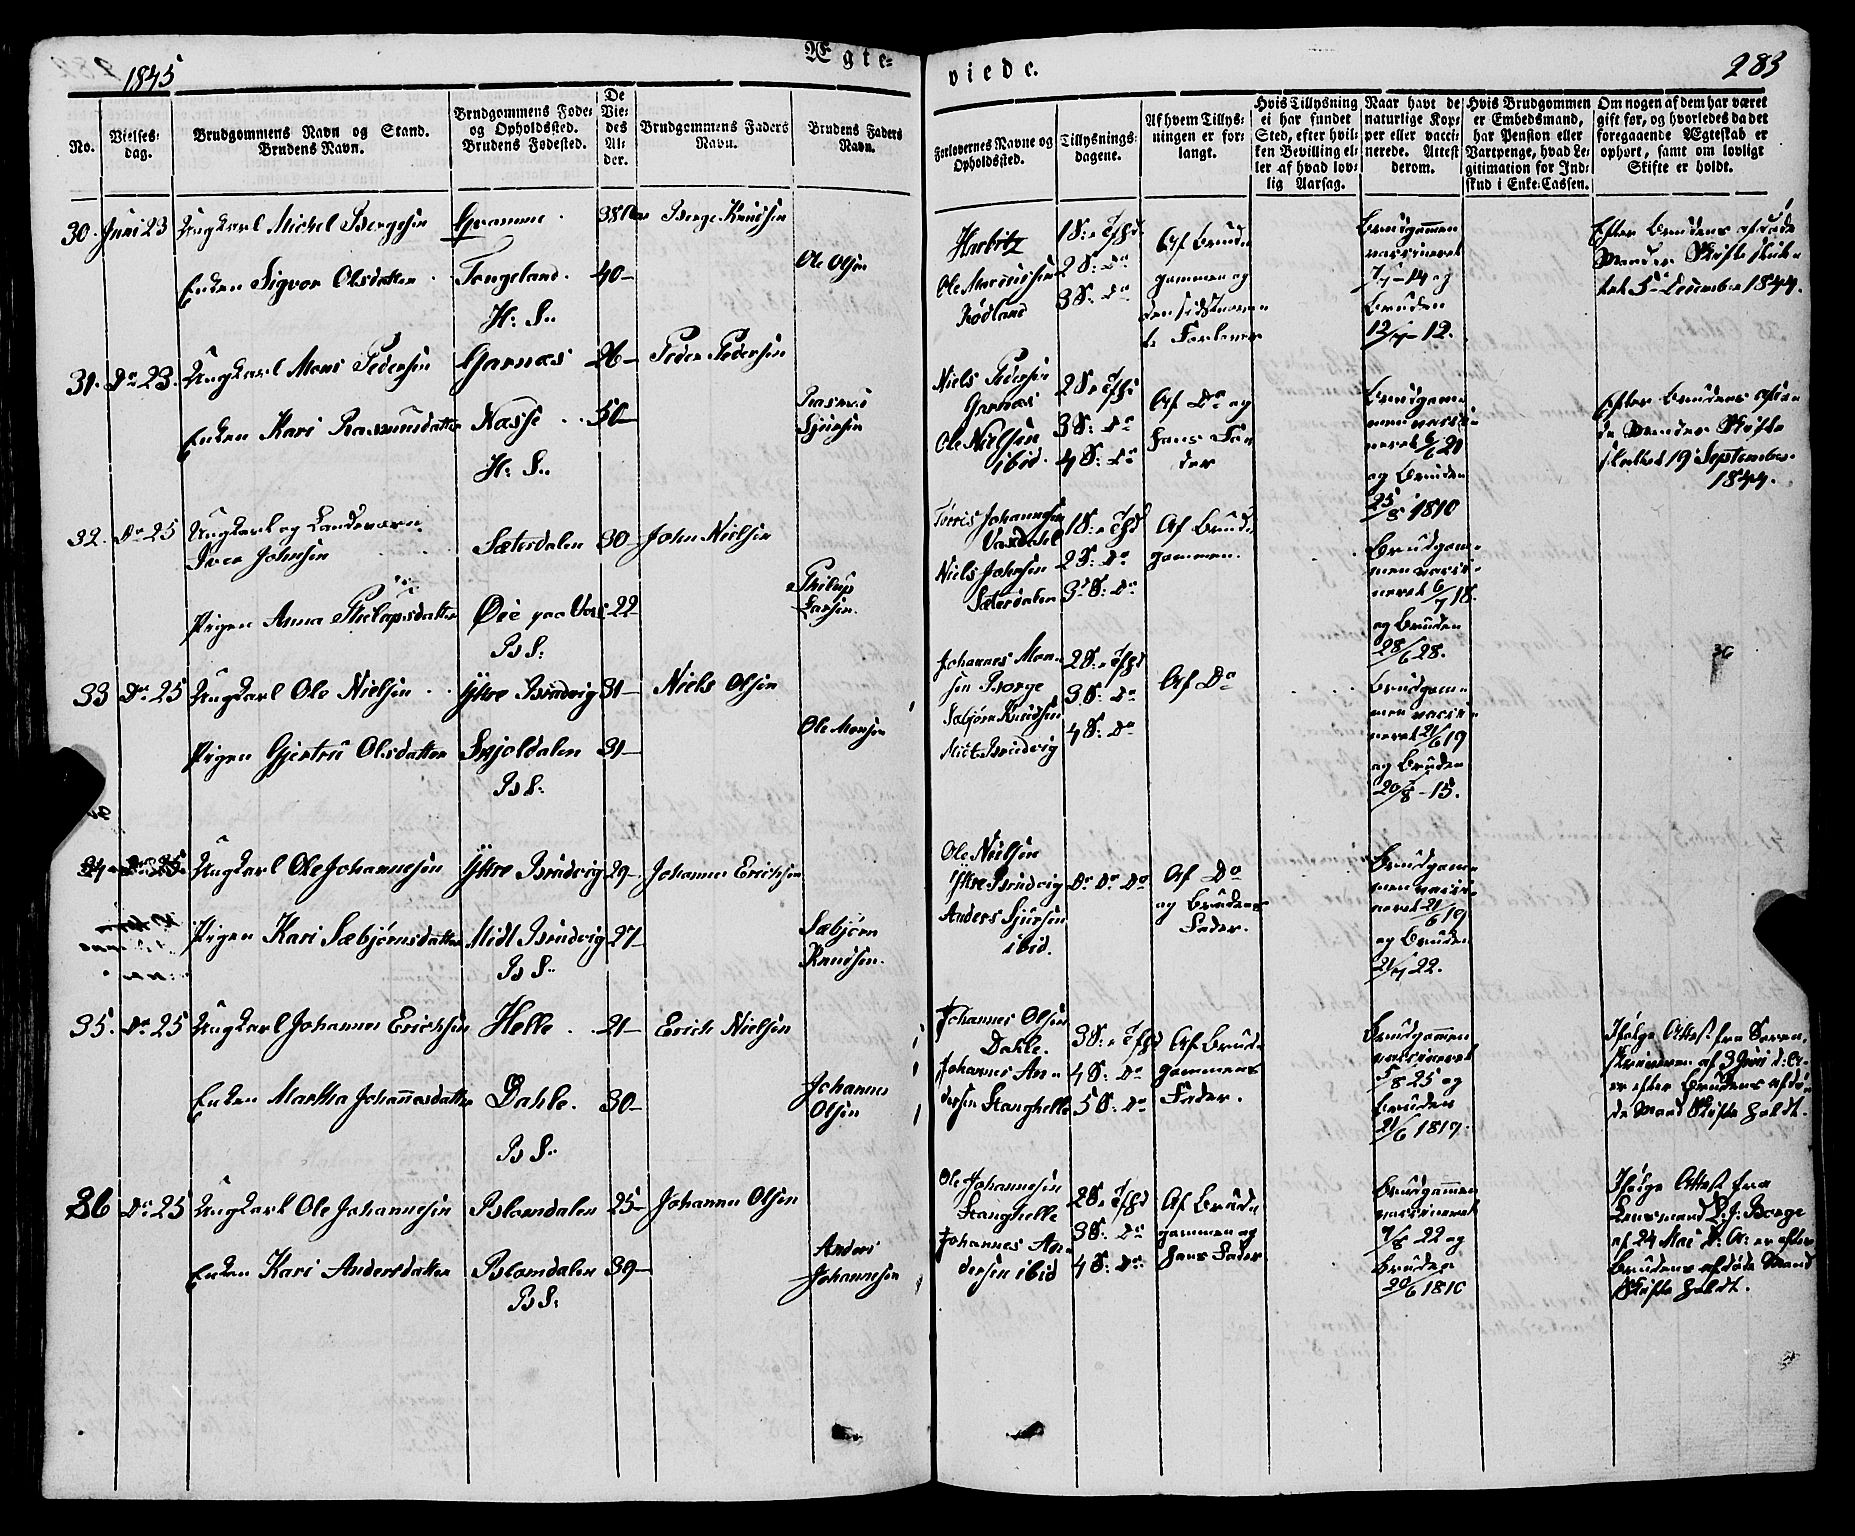 1845
Ægte-
viede.
283
No.
Vielses-
dag.
Brudgommens Navn og Stand.
Brudens Navn.
Brudgommens Føde-
og Opholdssted.
Brudens Fødested.
De
Vie-
des
Al-
der.
Brudgommens Faders
Navn.
Brudens Faders
Navn.
Forlovernes Navne og
Opholdssted.
Tillysnings-
dagene.
Af hvem Tillys-
ningen er for-
langt.
Hvis Tillysning
ei har fundet
Sted, efter hvil-
ken Bevilling el-
ler af hvad lov-
lig Aarsag.
Naar havt de
naturlige Kop-
per eller vacci-
nerede. Attest
derom.
Hvis Brudgommen
er Embedsmand,
har Pension eller
Vartpenge, hvad Le-
gitimation for Ind-
skud i Enke-Cassen.
Om nogen af dem har været
gift før, og hvorledes da det
foregaaende Ægteskab er
ophørt, samt om lovligt
Skifte er holdt.
30. Juni 23 Ungkarl Mickel Børgesen
Gramme
38 Børge Knudsen
Enken Sigvor Olsdatter
Tongeland
40
Ole Olsen
H: S.
Harbitz
Ole
Rødland
1S.
2S: Do
3S: Do
Af Brud
gommen og
den sidstnævn
te Forlover
Brudgommen
vaccineret
14 og
Bruden
12/ 12.
Efter Brudens afdøde
Mands Skifte slut
tet 5 December 1844.
31. Do 23. Ungkarl Mons Pedersen
Garnæs
26
Peder Pedersen
Enken Kari Rasmusdatter
Kasse
50
Rasmus
Sjursen
H: S.
Niels Pedersen
Garnæs
Ole Nielsen
ibid.
2S.
3S: Do
4S: Do
Af Do og
hans Fa
der
Brudgom
men vacci
neret 6/6 21
og Bruden
25/8 1810
Efter Brudens afdø
de Mands Skifte
sluttet 19 September
1844.
32. Do 25 Ungkarl og Landeværn
Iver Johnsen
Sætesdalen 30
John Nielsen
Pigen Anna Philipsdatter
Øie paa Vos 22
Philip
Larsen.
B S:
Johannesen
Vaxdahl
Niels Johnsen
Sætesdalen
1S.
2S: Do
3S: Do
Af Brud
gommen.
Brudgom
men vacci
neret 6/7 18.
og Bruden
28/6 28.
33 Do 25 Ungkarl Ole Nielsen
Yttre Bruvig 31
Niels Olsen
Pigen Gjertru Olsdatter
Skjoldalen 31
Ole Monsen
B S:
Johannes Mon
sen Borge
Sæbjørn Knudsen
Midt Bruvig
2S.
3S: Do
4S: Do
Af Do
Brudgom
men vacci
neret 21/6 19
og Bruden
20/8 15.
34 Do 25 Ungkarl Ole Johannesen
Yttre Bruvig 29
Johannes Erichsen
Pigen Kari Sæbjørnsdatter
Midt Bruvig 27
Sæbjørn
Knudsen.
B S.
Ole Nielsen
Yttre Bruvig
Anders Sjursen
ibid.
Do Do Do
Af Do
og Brudens
Fader.
Brudgom
men vacci
neret 21/6 19
og Bruden
21/ 22.
35. Do 25 Ungkarl Johannes Erichsen
Helle
21
Erich Nielsen
Enken Martha Johannesdatter
Dahle.
30
Johannes
Olsen
B S.
Johannes Olsen
Dahle.
Johannes An
dersen Stanghelle
3S.
4S: Do
5S: Do
Af Brud
gommens
Fader.
Brudgommen
vaccineret
5/8 25 og
Bruden
21/6 1817.
Ifølge Attest fra Soren
skriveren af 3 Juni d. A.
er efter Brudens afdø
de Mand Skifte holdt.
36 Do 25 Ungkarl Ole Johannesen
Blomdalen 25
Johannes Olsen
Enken Kari Andersdatter
Blomdalen 39
Anders
Johannesen
B S:
Ole Johannesen
Stanghelle
Johannes An
dersen ibid
2S.
3S: Do
4S: Do
Af Brud
gommen og
hans Fader
Brudgommen
vaccineret
7/8 22 og
Bruden
20/6 1810
Ifølge Attest fra
Lensmand Borge
af 24 Mai d: A: er efter
Brudens afdøde Mand
Skifte holdt.